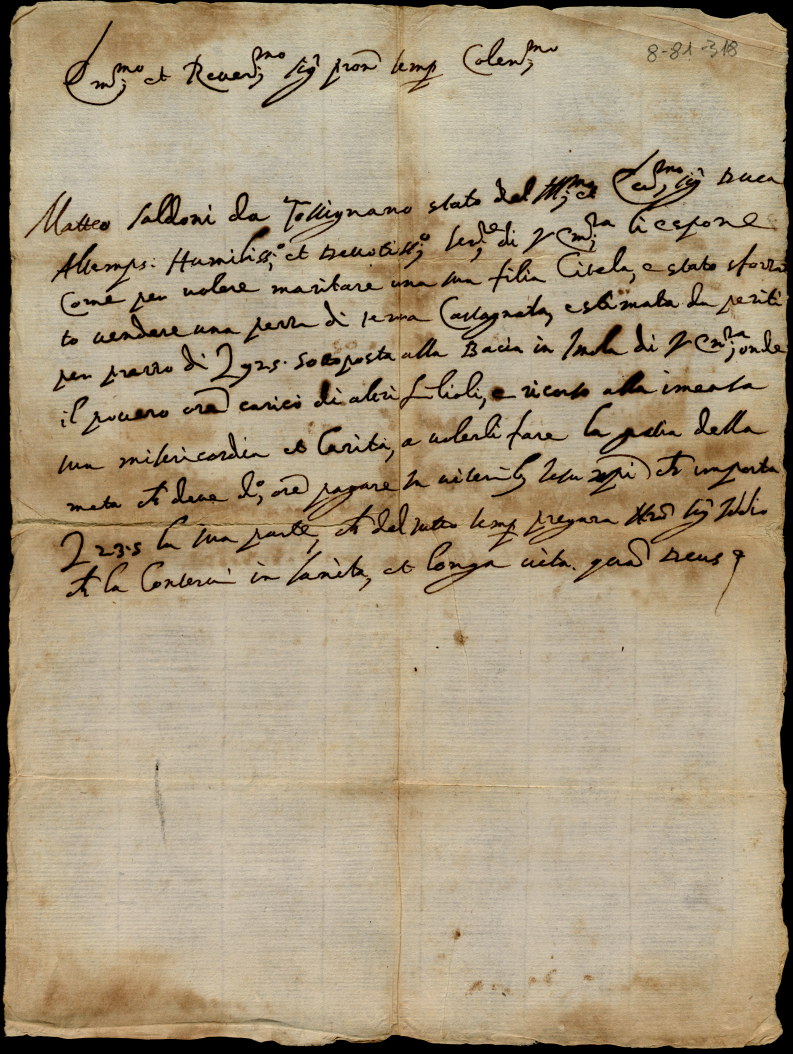 8-81-318
Em:mo et Rever:mo sig.r pron temp Colen:mo
Matteo Saldoni da Tossignano stato del Ill:mo et Ecc:mo sig.r Duca
Altemps: Humiliss:o et Devotiss:o ser:re di V Em:za li espone
Come per volere maritare una sua filia Citela, e stato sforza
to vendere una pezza di terra Castagnata, estimata da periti
per prezzo di 925. sottoposta alla Bacia in Imola di V Em:za, onde
il povero carico di altri filioli, e ricorso alla imensa
sua misericordia et Carita, a volerli fare la gratia della
meta ch deve pagare in Jesu ch importa
23.5 la sua parte, ch del tutto temp pregara sig.r Iddio
ch la Conservi in sanita, et longa vita. Deus